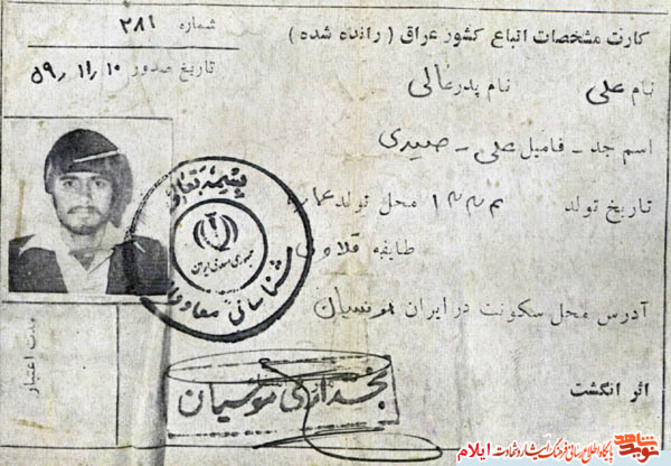 کارت مشخصات اتباع کشور عراق ( رانده شده )
شماره ۲۸۱
تاریخ صدور ۵۹٫۱۱٫۱۰
نام علی نام پدر عالی
اسم جد - فامیل علی - صیدی
تاریخ تولد محل تولد
طایفه
آدرس محل سکونت در ایران موسیان
اثر انگشت
مدت اعتبار
بسمه تعالی
جمهوری اسلامی ایران
شناسائی
بخشداری موسیان
نوید شاهد
پایگاه اطلاع رسانی فرهنگ ایثار و شهادت ایلام